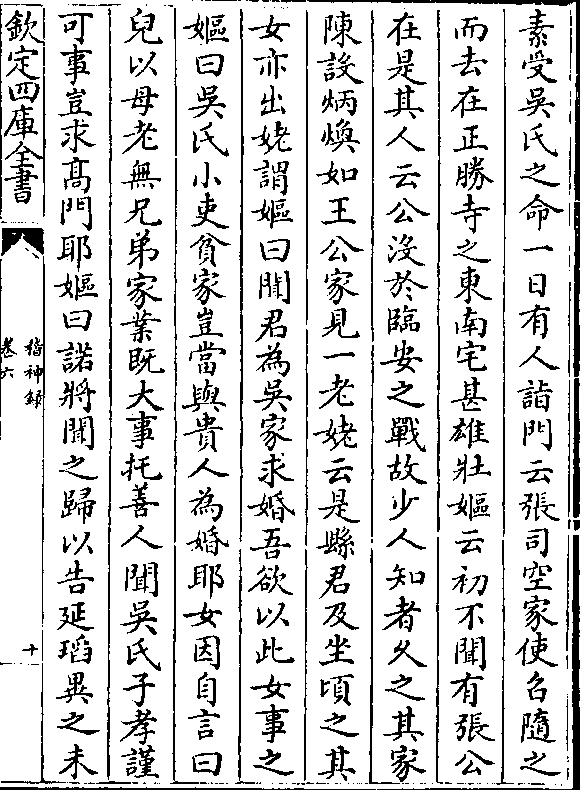 素受吳氏之命一日有人詣門云張司空家使召隨之
而去在正勝寺之東南宅甚雄壯嫗云初不聞有張公
在是其人云公沒於臨安之戰故少人知者久之其家
陳設炳煥如王公家見一老姥云是縣君及坐頃之其
女亦出姥謂嫗曰聞君為吳家求婚吾欲以此女事之
嫗曰吳氏小吏貧家豈當與貴人為婚耶女因自言曰
兒以母老無兄弟家業既大事托善人聞吳氏子孝謹
可事豈求髙門耶嫗曰諾將聞之歸以告延瑫異之未
欽定四庫全書
稽神錄
卷六
十